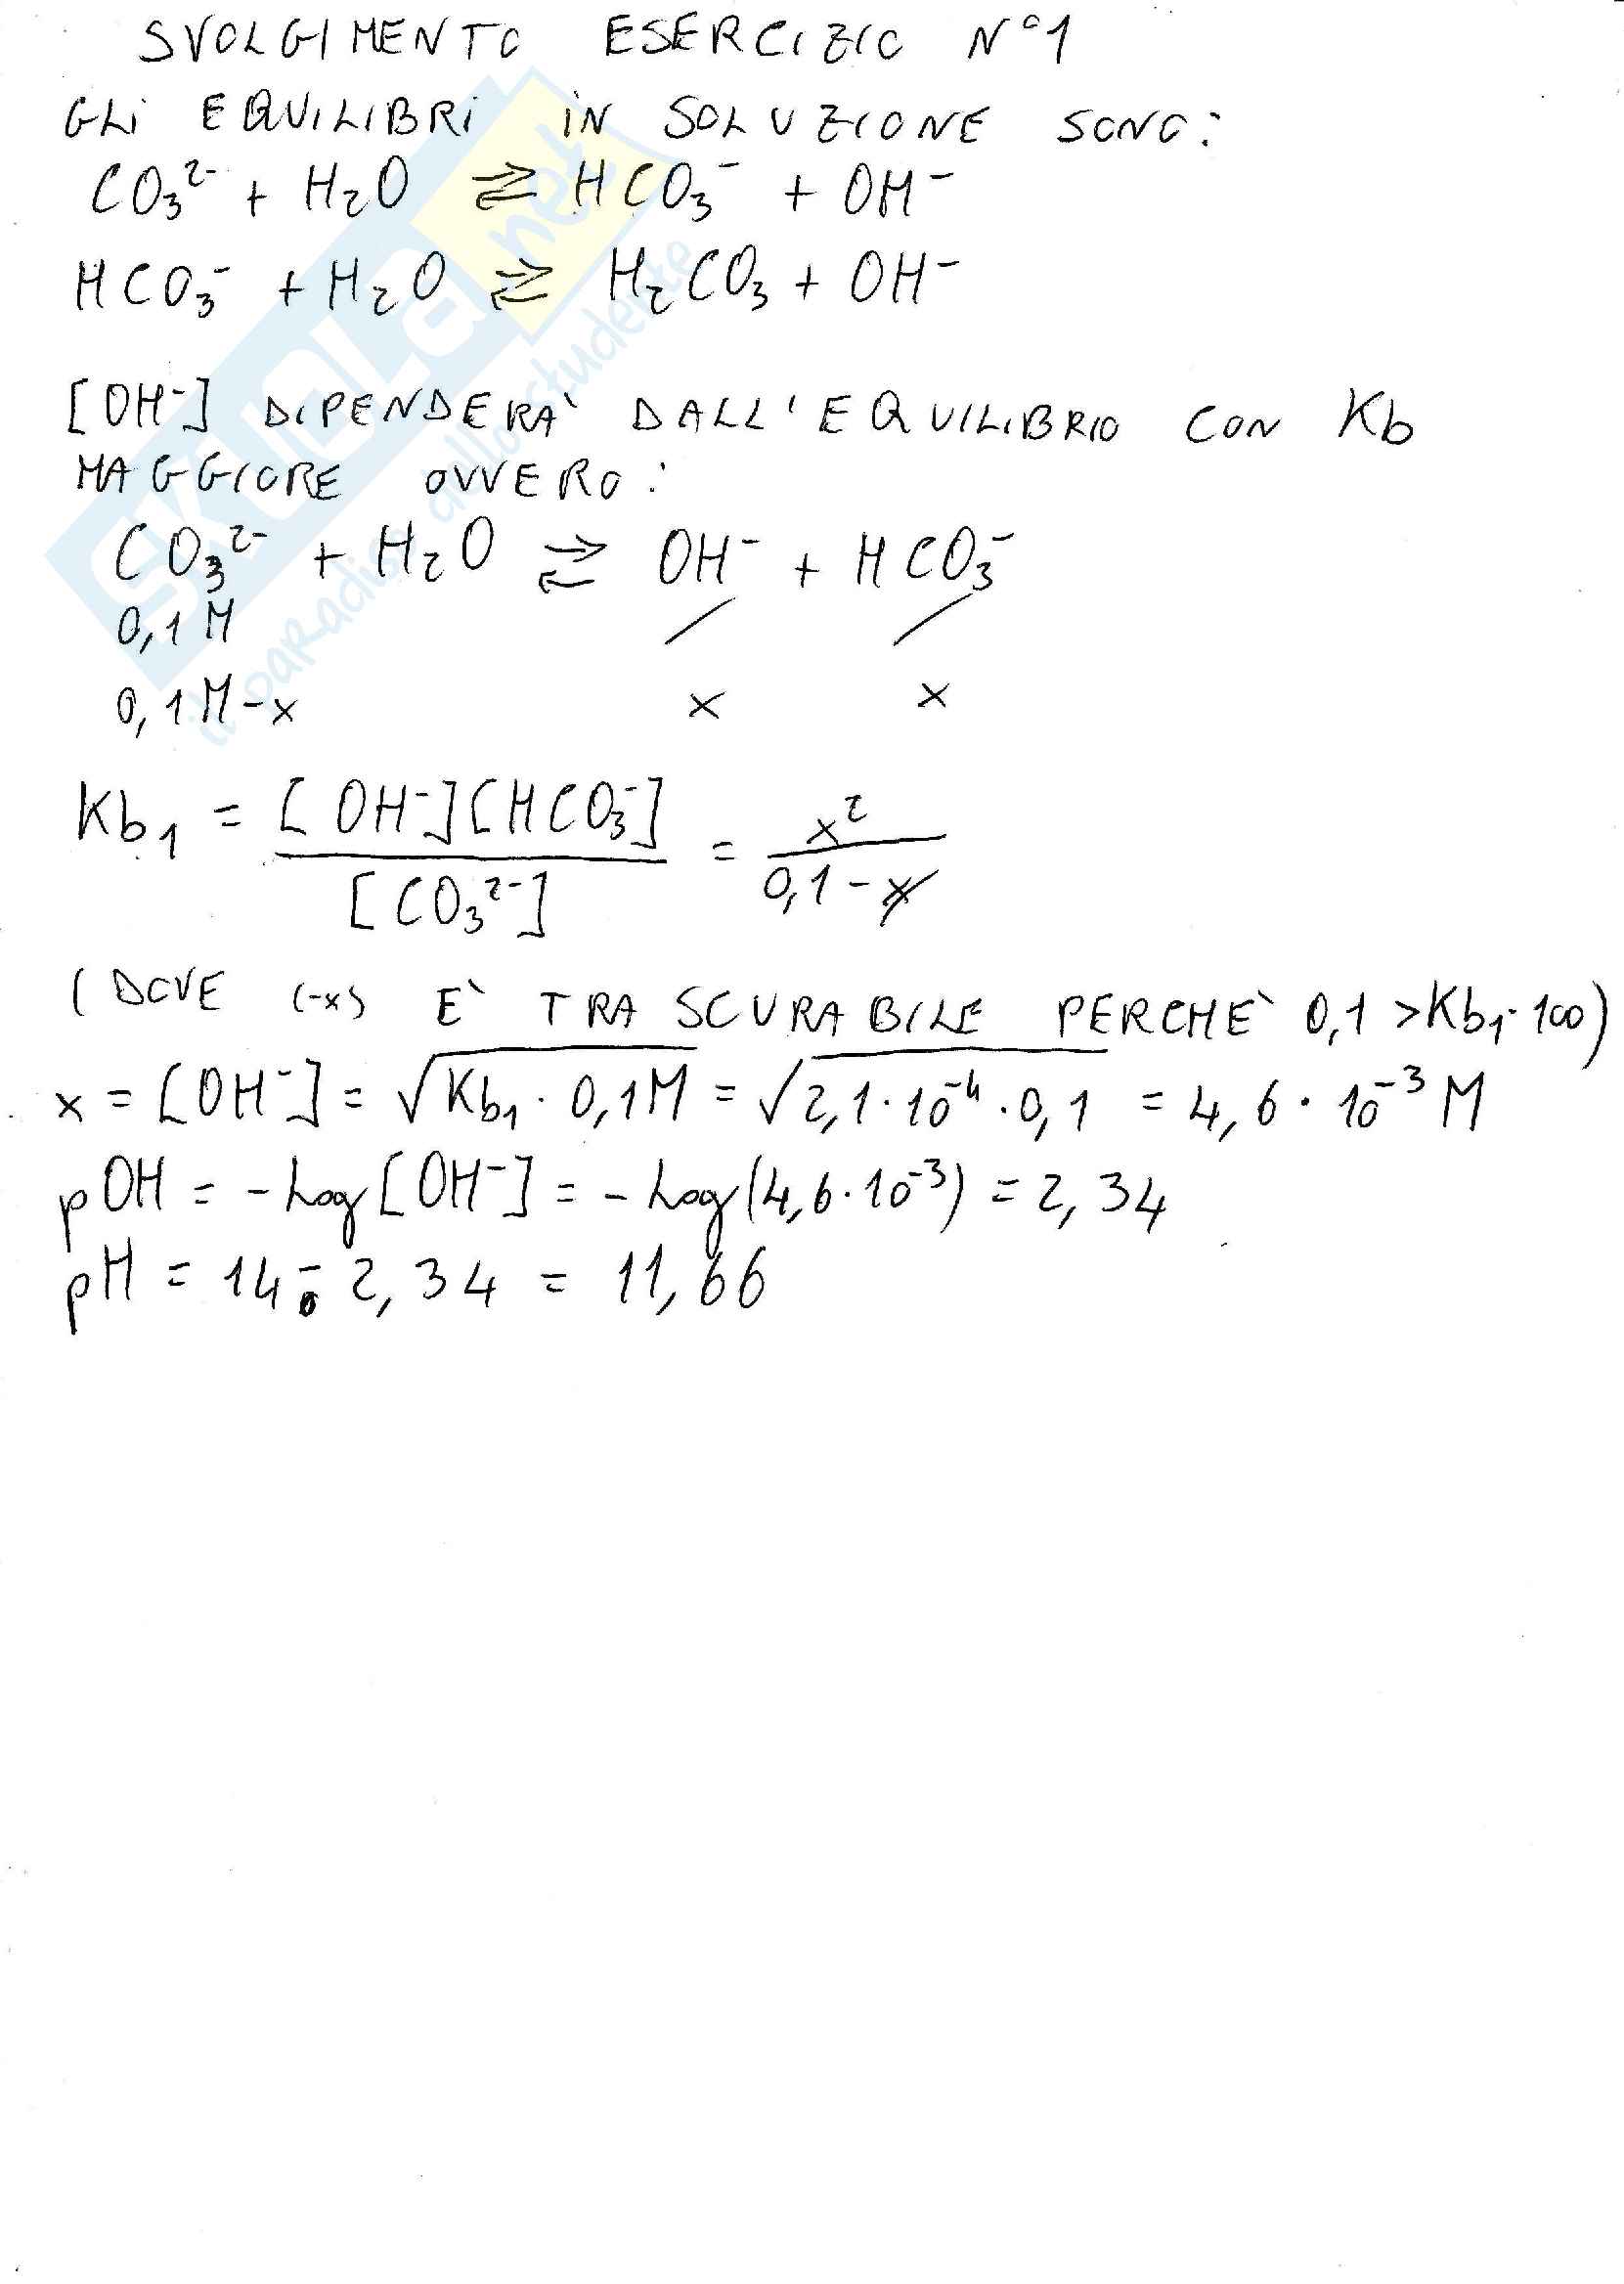 SVOLGIMENTO ESERCIZIO N°1
GLI EQUILIBRI IN SOLUZIONE SONO:
CO₃²⁻ + H₂O ⇄ HCO₃⁻ + OH⁻
HCO₃⁻ + H₂O ⇄ H₂CO₃ + OH⁻
[OH⁻] DIPENDERA' DALL'EQUILIBRIO CON Kb
MAGGIORE OVVERO:
CO₃²⁻ + H₂O ⇄ OH⁻ + HCO₃⁻
0,1M / /
0,1M-x x x
Kb₁ = [OH⁻][HCO₃⁻] / [CO₃²⁻] = x² / 0,1-x
(DOVE (-x) E' TRASCURABILE PERCHE' 0,1 >Kb₁·100)
x = [OH⁻] = √Kb₁·0,1M = √2,1·10⁻⁴·0,1 = 4,6·10⁻³ M
pOH = -Log[OH⁻] = -Log(4,6·10⁻³) = 2,34
pH = 14-2,34 = 11,66
SKUOLA.net
il paradiso dello studente